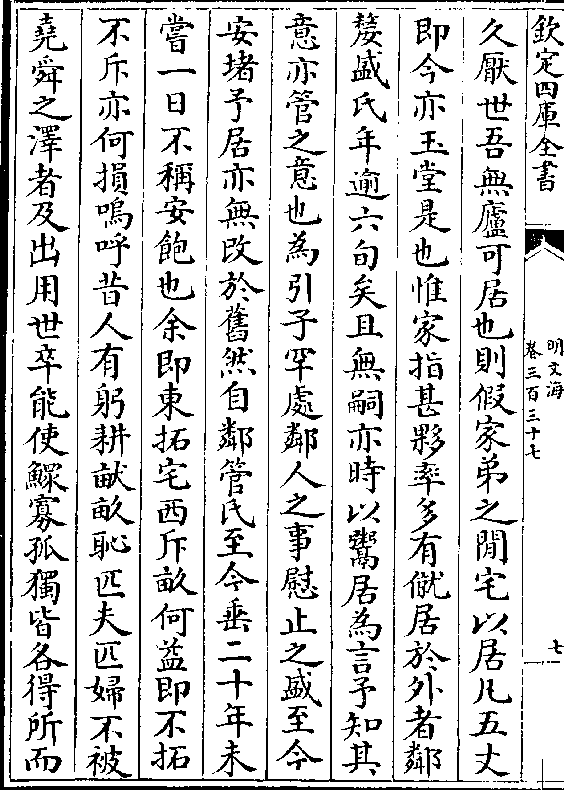 欽定四庫全書
明文海
卷三百三十七
七
久厭世吾無廬可居也則假家弟之閒宅以居凡五丈
即今亦玉堂是也惟家指甚夥率多有僦居於外者鄰
嫠盛氏年逾六旬矣且無嗣亦時以鬻居為言予知其
意亦管之意也為引子罕處鄰人之事慰止之盛至今
安堵予居亦無改於舊然自鄰管氏至今垂二十年未
嘗一日不稱安飽也余即東拓宅西斥畝何益即不拓
不斥亦何損嗚呼昔人有躬耕畎畝恥匹夫匹婦不被
堯舜之澤者及出用世卒能使鰥寡孤獨皆各得所而